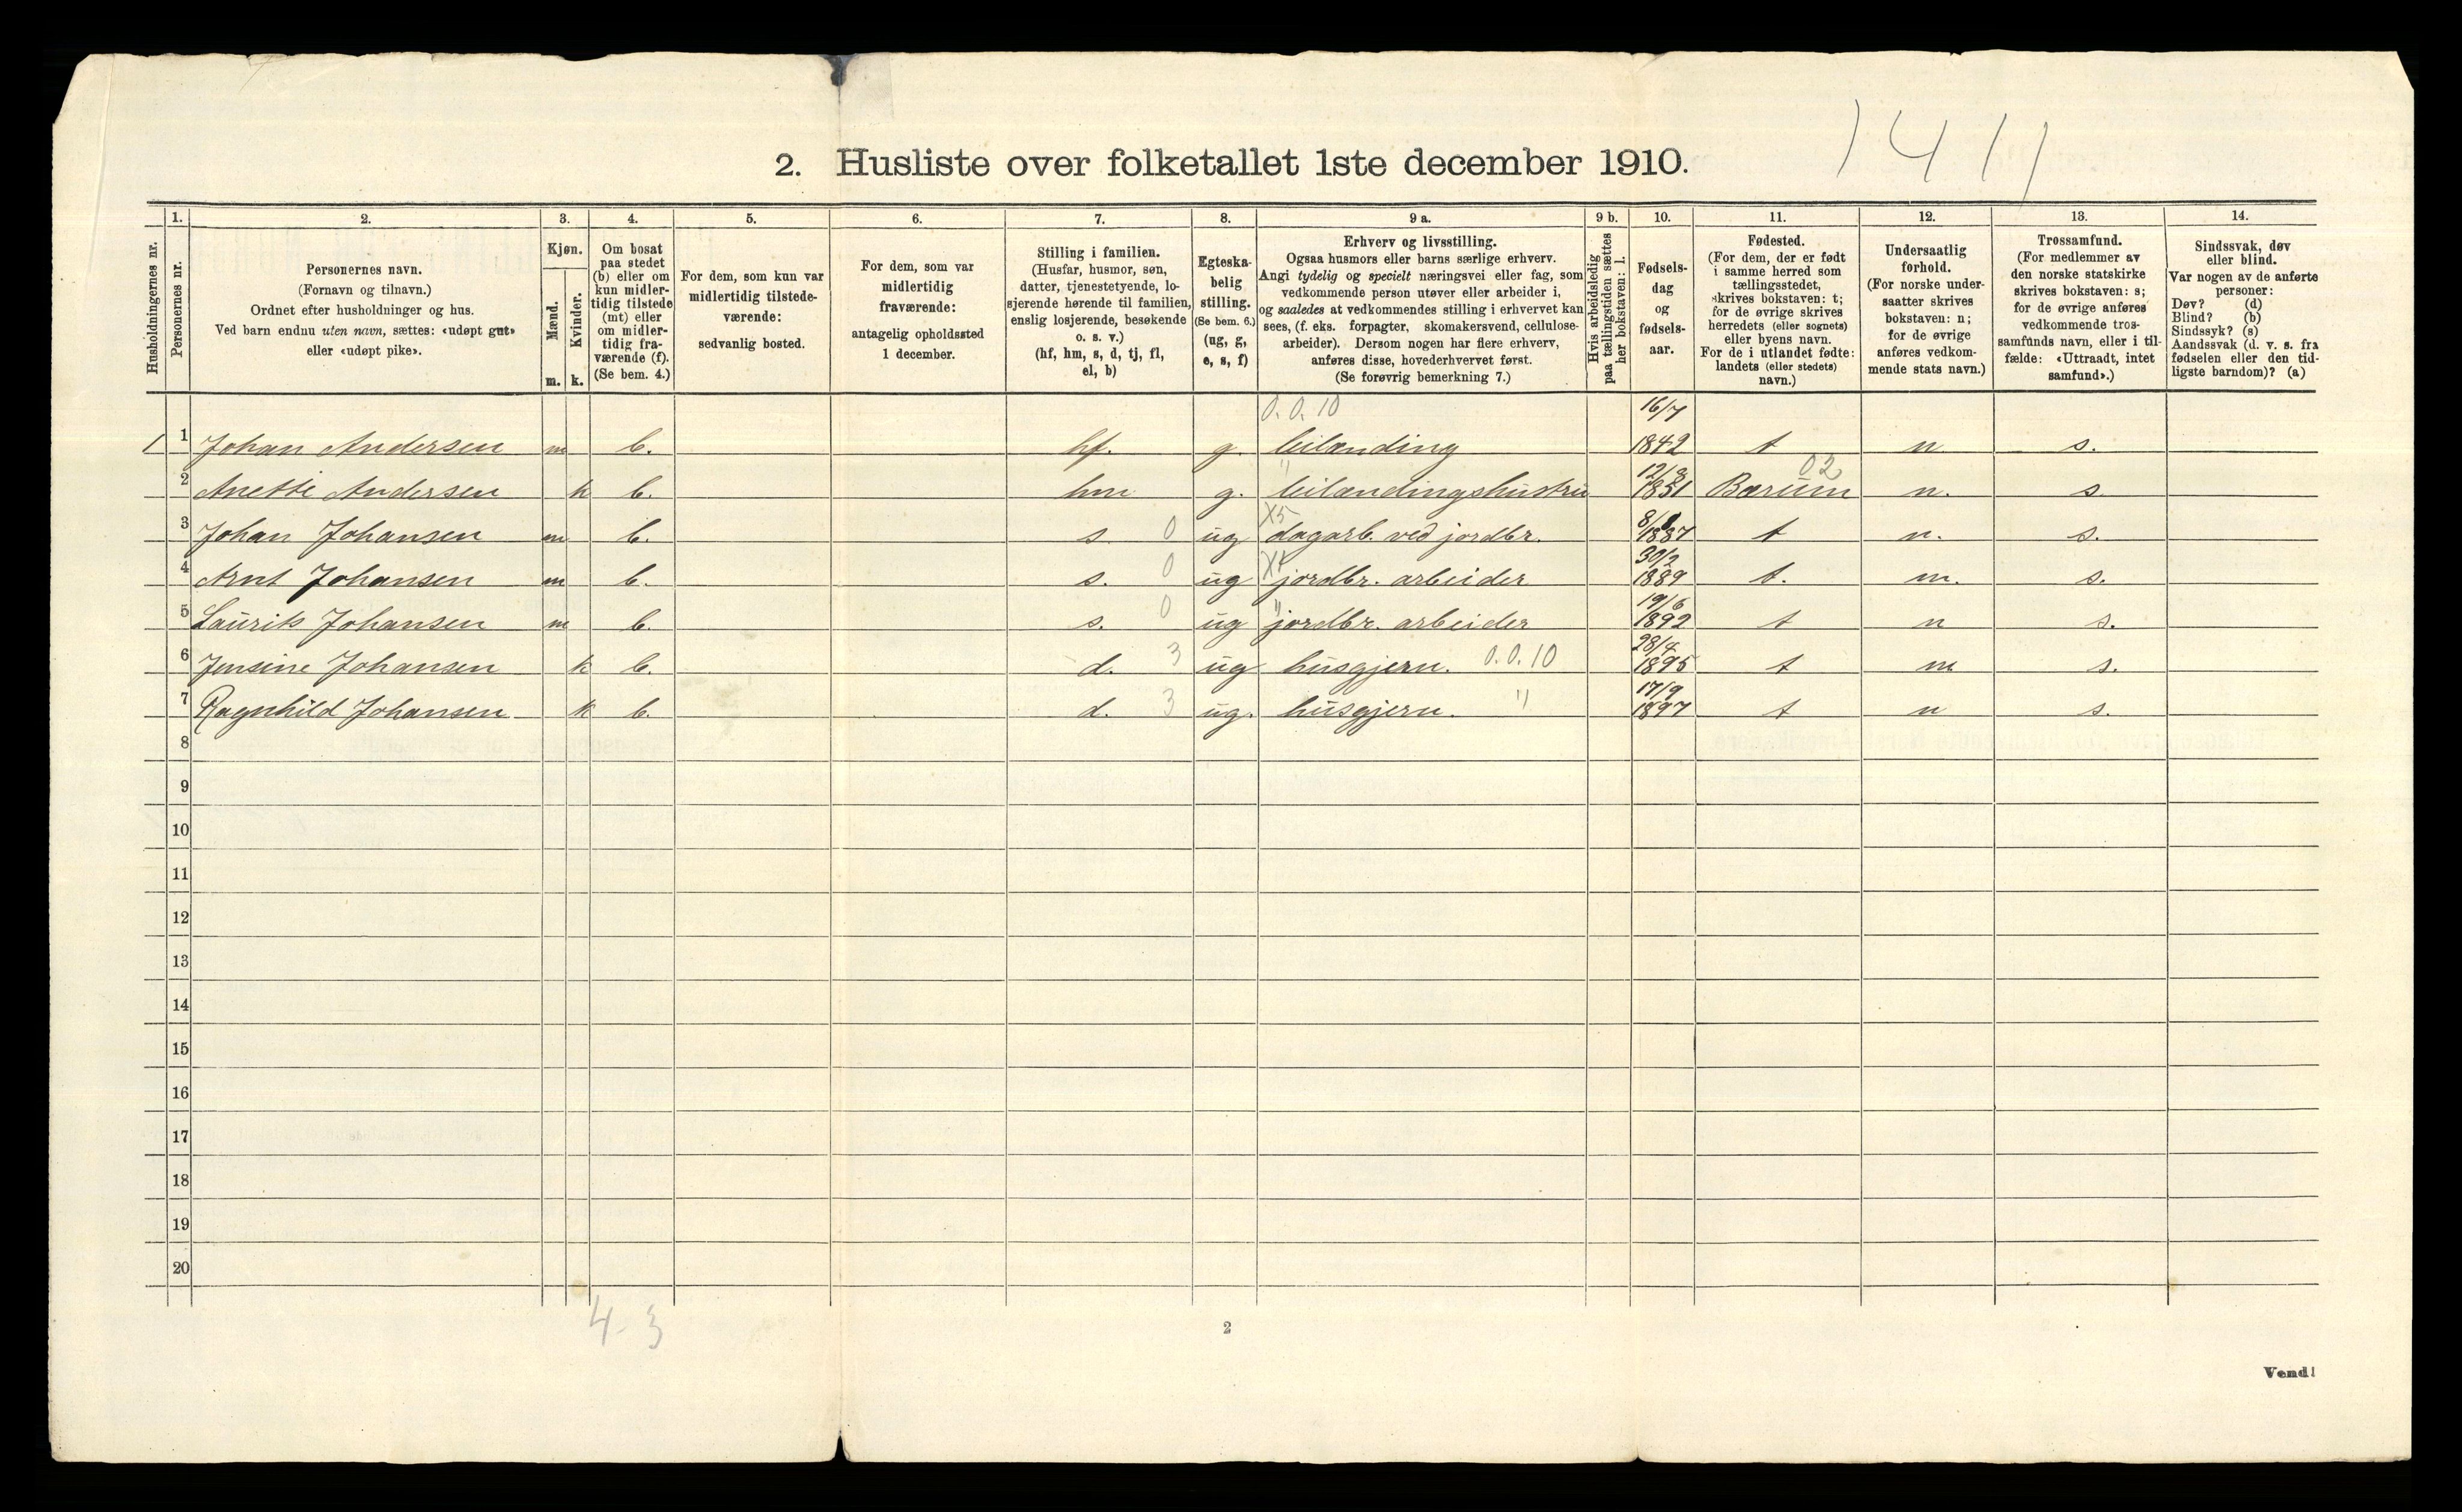 1411
2. Husliste over folketallet 1ste december 1910.
Husholdningernes nr.
1.
Personernes nr.
2.
Personernes navn.
(Fornavn og tilnavn.)
Ordnet efter husholdninger og hus.
Ved barn endnu uten navn, sættes: «udøpt gut»
eller «udøpt pike».
3.
Kjøn.
Mænd.
Kvinder.
m. k.
4.
Om bosat
paa stedet
(b) eller om
kun midler-
tidig tilstede
(mt) eller
om midler-
tidig fra-
værende (f).
(Se bem. 4.)
5.
For dem, som kun var
midlertidig tilstede-
værende:
sedvanlig bosted.
6.
For dem, som var
midlertidig
fraværende:
antagelig opholdssted
1 december.
7.
Stilling i familien.
(Husfar, husmor, søn,
datter, tjenestetyende, lo-
sjerende hørende til familien,
enslig losjerende, besøkende
o. s. v.)
(hf, hm, s, d, tj, fl,
el, b)
8.
Egteska-
belig
stilling.
(Se bem. 6.)
(ug, g,
e, s, f)
9 a.
Erhverv og livsstilling.
Ogsaa husmors eller barns særlige erhverv.
Angi tydelig og specielt næringsvei eller fag, som
vedkommende person utøver eller arbeider i,
og saaledes at vedkommendes stilling i erhvervet kan
sees, (f. eks. forpagter, skomakersvend, cellulose-
arbeider). Dersom nogen har flere erhverv,
anføres disse, hovederhvervet først.
(Se forøvrig bemerkning 7.)
9 b.
Hvis arbeidsledig
paa tællingstiden sættes
her bokstaven: l.
10.
Fødsels-
dag
og
fødsels-
aar.
11.
Fødested.
(For dem, der er født
i samme herred som
tællingsstedet,
skrives bokstaven: t;
for de øvrige skrives
herredets (eller sognets)
eller byens navn.
For de i utlandet fødte:
landets (eller stedets)
navn.)
12.
Undersaatlig
forhold.
(For norske under-
saatter skrives
bokstaven: n;
for de øvrige
anføres vedkom-
mende stats navn.)
13.
Trossamfund.
(For medlemmer av
den norske statskirke
skrives bokstaven: s;
for de øvrige anføres
vedkommende tros-
samfunds navn, eller i til-
fælde: «Uttraadt, intet
samfund».)
14.
Sindssvak, døv
eller blind.
Var nogen av de anførte
personer:
Døv? (d)
Blind? (b)
Sindssyk? (s)
Aandssvak (d. v. s. fra
fødselen eller den tid-
ligste barndom)? (a)
0.0.10 16/7
1 1 Johan Andersen m b. hf. g. leilending 1842 t n s.
" 02
2 Anette Andersen k b. hm g. leilendingshustru 1851 Bærum n. s
X5
3 Johan Johansen m b. s. 0 ug dagarb. ved jordbr. 1887 t n. s.
X4 30/2
4 Arnt Johansen m b. s. 0 ug jordbr. arbeider 1889 t. n. s.
" 19/6
5 Laurits Johansen m b. s. 0 ug jordbr. arbeider 1892 t n s.
28/4
6 Jensine Johansen k b. d. 3 ug husgjern. 0.0.10 1895 t n s.
17/9
7 Ragnhild Johansen k b. d. 3 ug. husgjern. " 1897 t n s.
8
9
10
11
12
13
14
15
16
17
18
19
20
4-3
2
Vend!